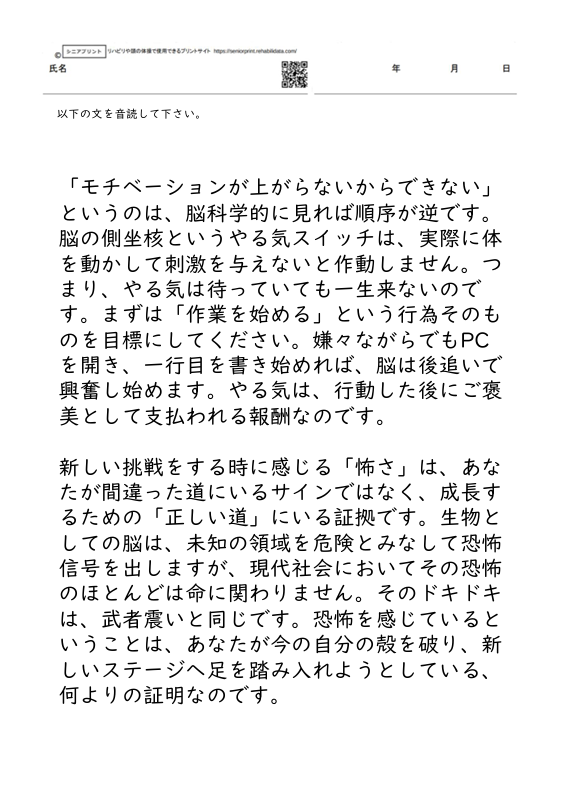 © シニアプリント リハビリや頭の体操で使用できるプリントサイト https://seniorprint.rehabilidata.com/
氏名 年 月 日
以下の文を音読して下さい。
「モチベーションが上がらないからできない」
というのは、脳科学的に見れば順序が逆です。
脳の側坐核というやる気スイッチは、実際に体
を動かして刺激を与えないと作動しません。つ
まり、やる気は待っていても一生来ないので
す。まずは「作業を始める」という行為そのも
のを目標にしてください。嫌々ながらでもPC
を開き、一行目を書き始めれば、脳は後追いで
興奮し始めます。やる気は、行動した後にご褒
美として支払われる報酬なのです。
新しい挑戦をする時に感じる「怖さ」は、あな
たが間違った道にいるサインではなく、成長す
るための「正しい道」にいる証拠です。生物と
しての脳は、未知の領域を危険とみなして恐怖
信号を出しますが、現代社会においてその恐怖
のほとんどは命に関わりません。そのドキドキ
は、武者震いと同じです。恐怖を感じていると
いうことは、あなたが今の自分の殻を破り、新
しいステージへ足を踏み入れようとしている、
何よりの証明なのです。